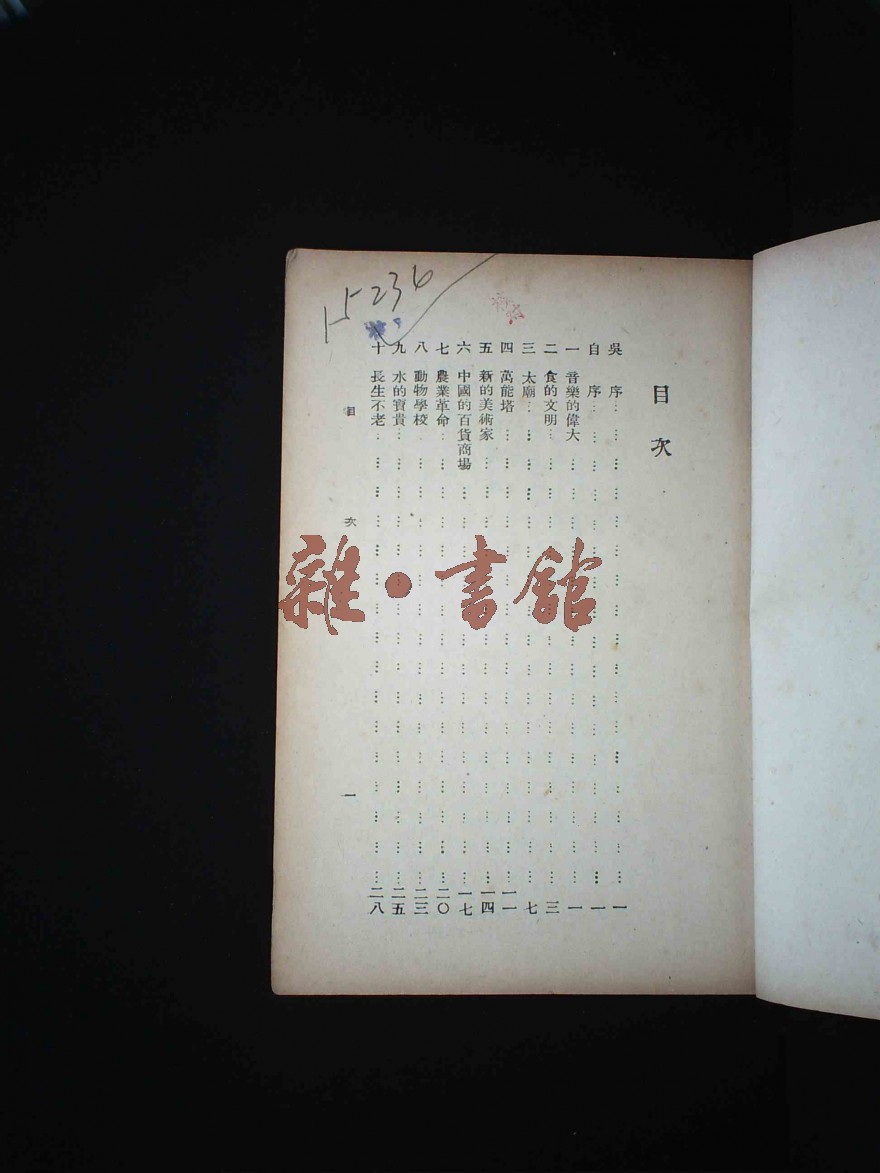 15236
目次
吳序…………………………………………一
自序…………………………………………一
一 音樂的偉大…………………………………………一
二 食的文明…………………………………………三
三 太廟…………………………………………七
四 萬能塔…………………………………………一一
五 新的美術家…………………………………………一四
六 中國的百貨商場…………………………………………一七
七 農業革命…………………………………………二〇
八 動物學校…………………………………………二三
九 水的寶貴…………………………………………二五
十 長生不老…………………………………………二八
目次 一
雜·書館